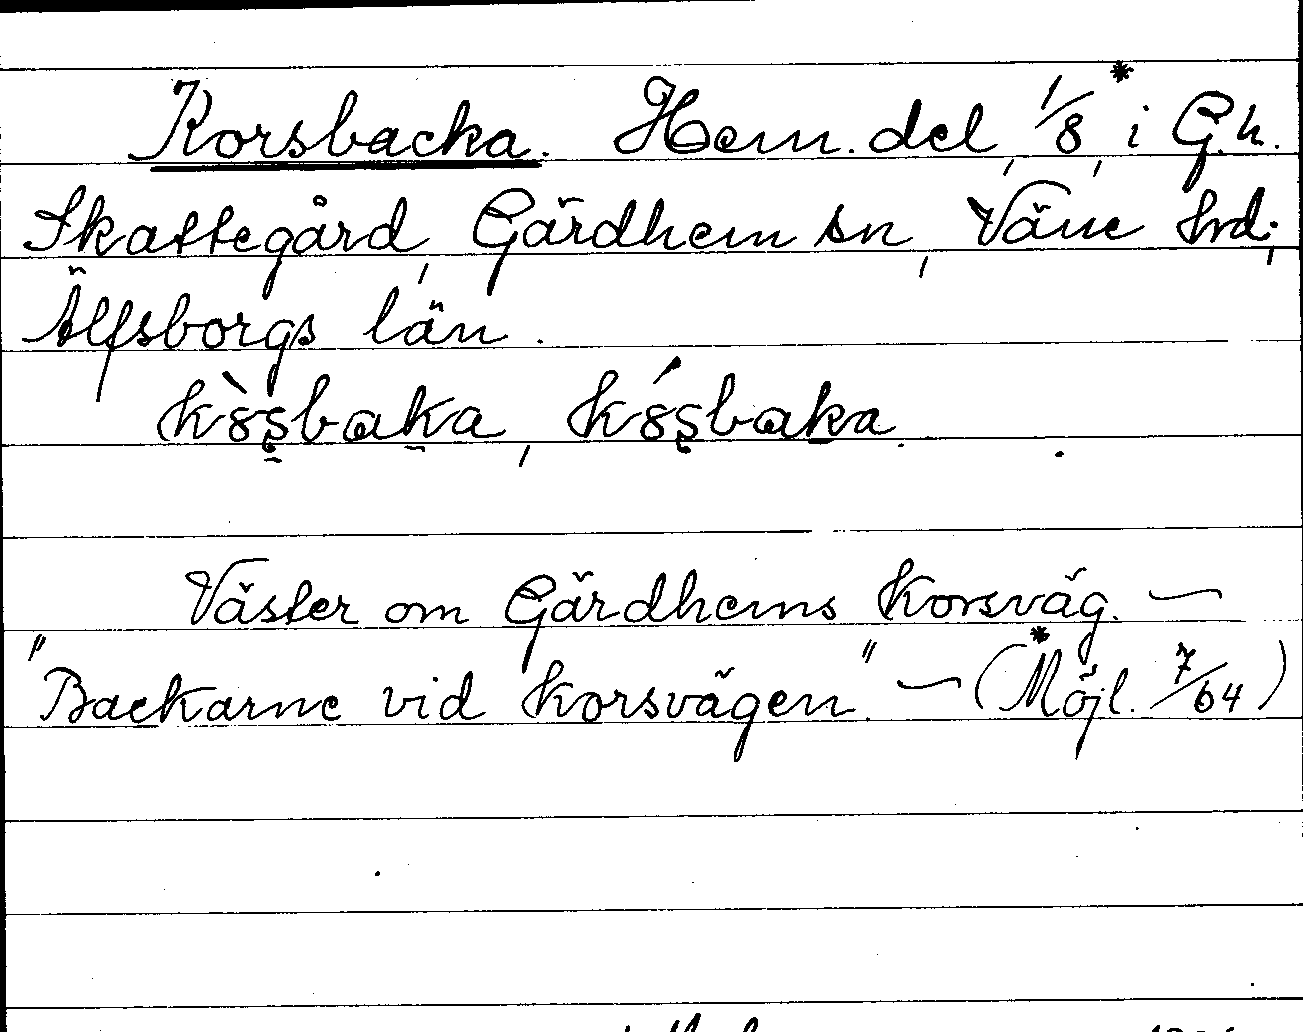 Korsbacka. Hem. del, 1/8*, i G.h.
Skattegård, Gärdhem sn, Väne hrd;
Älfsborgs län.
k8̀s̱baḵa, k8́s̱baḵa.
Väster om Gärdhems korsväg. —
"Backarne vid korsvägen." — (*Möjl. 7/64)